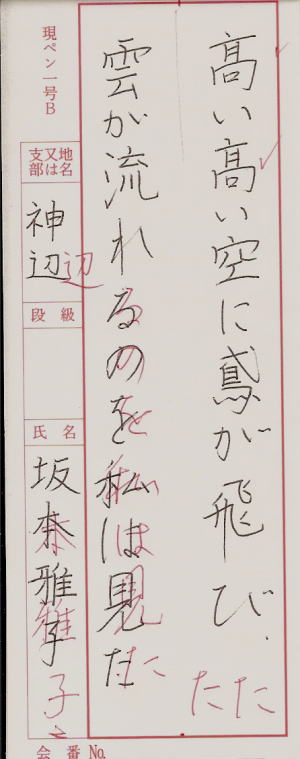 高い高い空に鳶が飛び、
たた
雲が流れるのを私は見た
現ペン一号B
支部又は地名
神辺
辺
段級
氏名
雅子
雅
子
会番No.